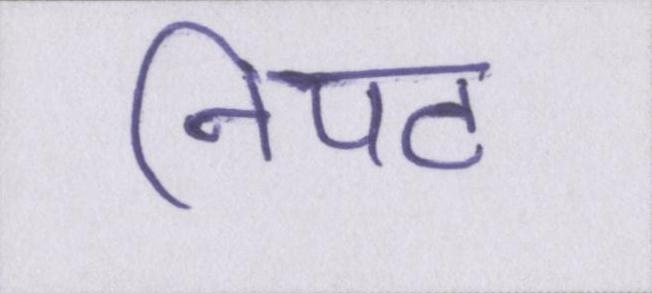 निपट